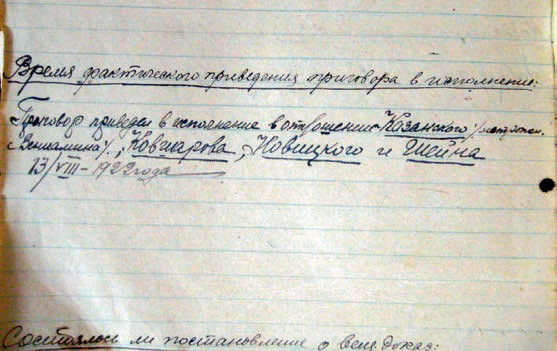 Время фактического приведения приговора в исполнение:
Приговор приведен в исполнение в отношении Казанского /митропол.
Вениамина/, Ковшарова, Новицкого и Шеина
13/VIII-1922 года
Состоялось ли постановление о вещ. доказ: